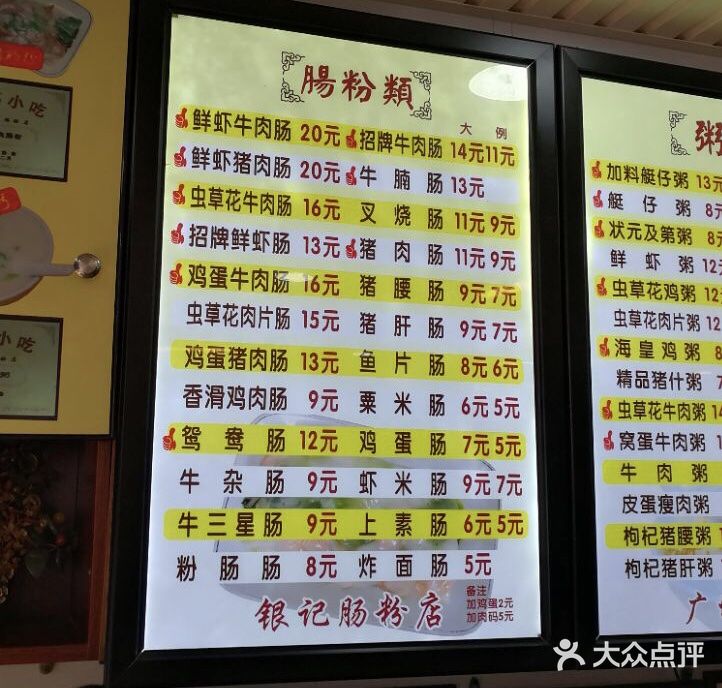 小吃
小吃
腸粉類
大 例
鲜虾牛肉肠 20元 招牌牛肉肠 14元 11元
鲜虾猪肉肠 20元 牛腩肠 13元
虫草花牛肉肠 16元 叉烧肠 11元 9元
招牌鲜虾肠 13元 猪肉肠 11元 9元
鸡蛋牛肉肠 16元 猪腰肠 9元 7元
虫草花肉片肠 15元 猪肝肠 9元 7元
鸡蛋猪肉肠 13元 鱼片肠 8元 6元
香滑鸡肉肠 9元 粟米肠 6元 5元
鸳鸯肠 12元 鸡蛋肠 7元 5元
牛杂肠 9元 虾米肠 9元 7元
牛三星肠 9元 上素肠 6元 5元
粉肠肠 8元 炸面肠 5元
备注
加鸡蛋2元
加肉码5元
银记肠粉店
粥
加料艇仔粥 13元
艇仔粥 8元
状元及第粥 8元
鲜虾粥 12元
虫草花鸡粥 12元
虫草花肉片粥 12
海皇鸡粥
精品猪什粥
虫草花牛肉粥 14
窝蛋牛肉粥
牛肉粥
皮蛋瘦肉粥
枸杞猪腰粥
枸杞猪肝粥
广
大众点评